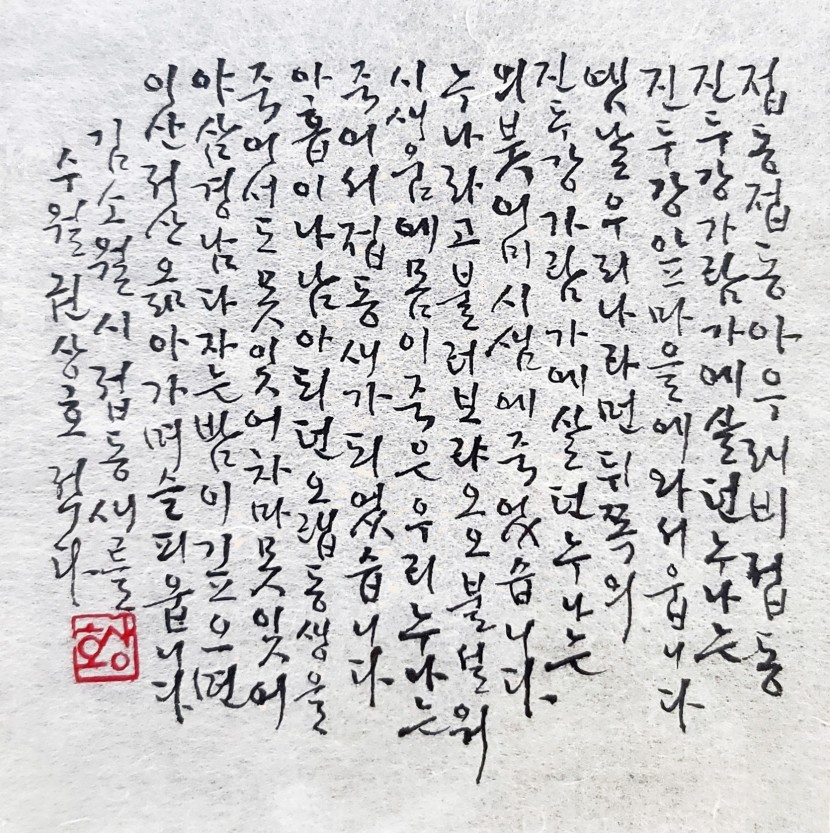 접동접동아우래비접동
진두강가람가에살던누나는
진두강앞마을에와서웁니다
옛날우리나라먼뒤쪽의
진두강가람가에살던누나는
의붓어미시샘에죽었습니다.
누나라고불러보랴오오불설워
시새움에몸이죽은우리누나는
죽어서접동새가되었습니다
아홉이나남아되던오랩동생을
죽어서도못잊어차마못잊어
야삼경남다자는밤이깊으면
이산저산옮아가며슬피웁니다.
김소월시접동새를
수월권상호적다.
상호